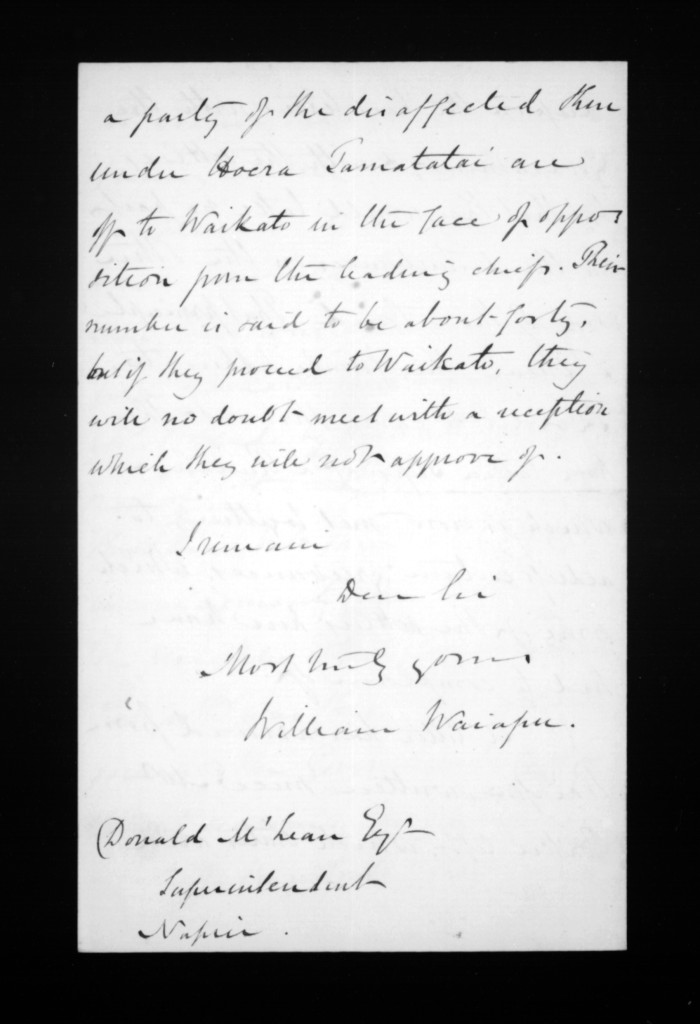 a party of the disaffected there
under Hoera Tamatatai are
off to Waikato in the face of oppo-
sition from the leading chiefs. Their
number is said to be about forty,
but if they proceed to Waikato, they
will no doubt meet with a reception
which they will not approve of.
I remain
Dear Sir
Most truly yours
William Waiapu.
Donald McLean Esqr
Superintendent
Napier.